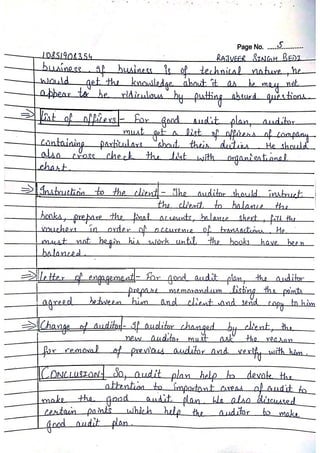 Page No. 5
10851901354 RAJVEER SINGH BEDI
business. If business is of technical nature, he
would get the knowledge about it as he may not
appear to be ridiculous by putting absurd questions.
⇒ List of officers - For good audit plan, auditor
must get a list of officers of company
containing particulars about their duties. He should
also cross check the list with organizational
chart.
⇒ Instruction to the client - The auditor should instruct
the client to balance the
books, prepare the final accounts, balance sheet, fill the
vouchers in order of occurence of transaction. He
must not begin his work until the books have been
balanced.
⇒ Letter of engagement - For good audit plan, the auditor
prepare memorandum listing the points
agreed between him and client and send copy to him
⇒ Change of auditor - If auditor changed by client, the
new auditor must ask the reason
for removal of previous auditor and verify with him.
CONCLUSION - So, audit plan help to devote the
attention to important areas of audit to
make the good audit plan. We also discussed
certain points which help the auditor to make
good audit plan.